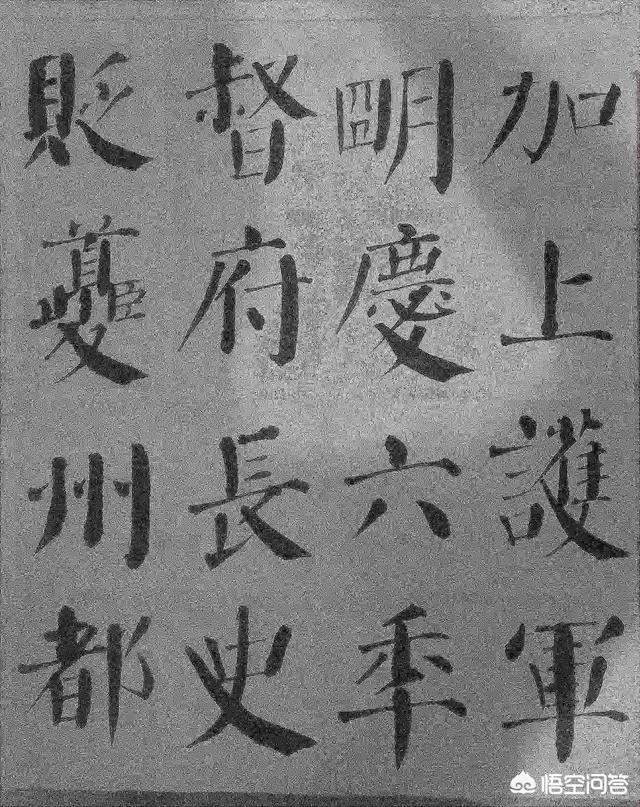 貶夔州都
督府長史
明慶六年
加上護軍
悟空问答